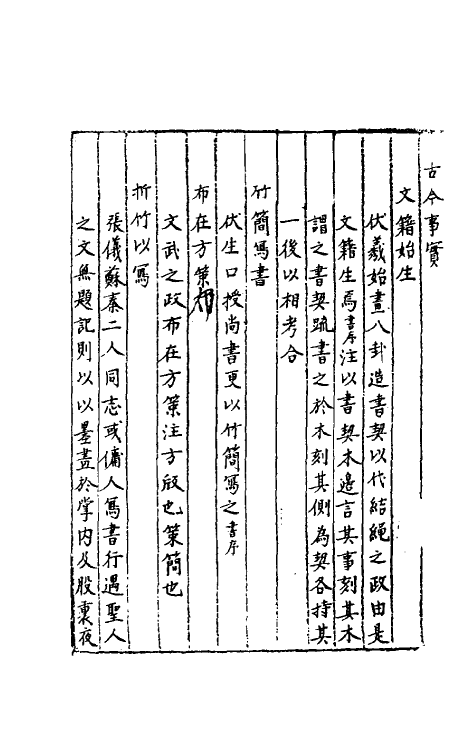 古今事實
文籍始生
伏羲始畫八卦造書契以代結繩之政由是
文籍生焉書序注以書契木邉言其事刻其木
謂之書契疏書之於木刻其側為契各持其
一後以相考合
竹簡寫書
伏生口授尚書更以竹簡寫之書序
布在方策
文武之政布在方策注方版也策簡也
折竹以寫
張儀蘇秦二人同志或傭人寫書行遇聖人
之文無題記則以以墨畫於掌内及股裏夜